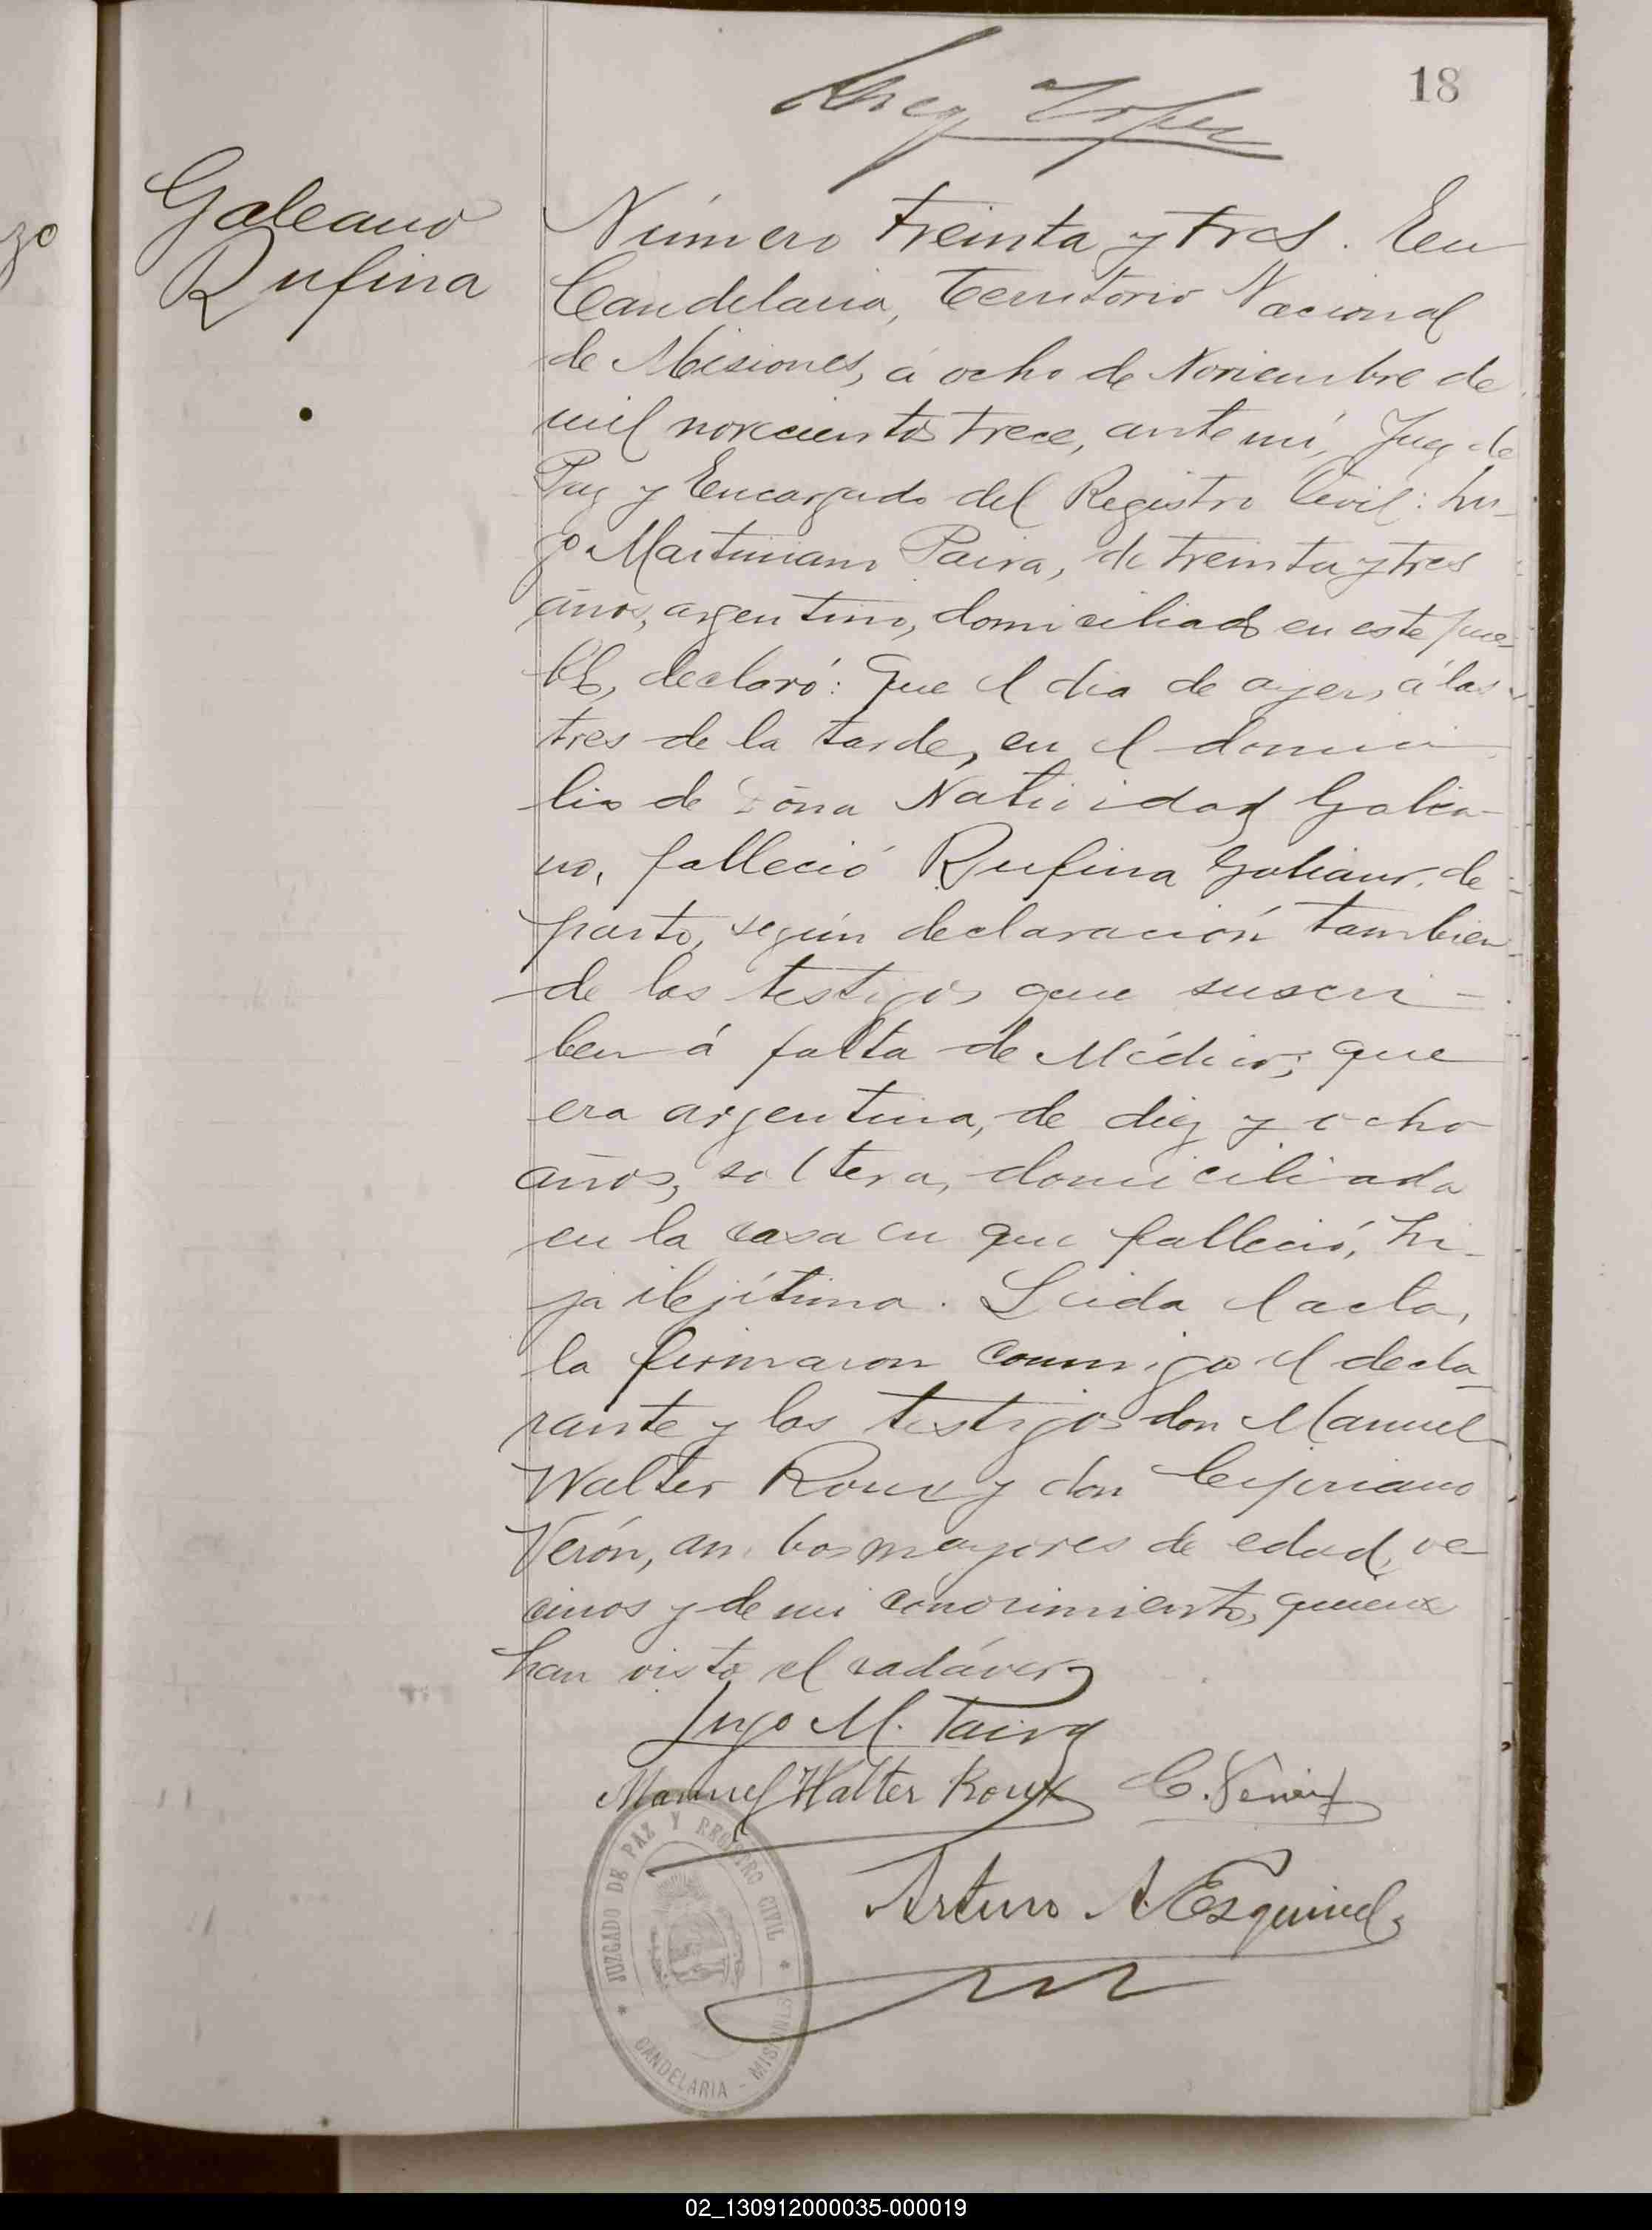 18
Galeano
Rufina
zo
Número treinta y tres. En
Candelaria, Territorio Nacional
de Misiones, á ocho de Noviembre de
mil novecientos trece, ante mí, Juez de
Paz y Encargado del Registro Civil: Hu-
go Martiniano Paiva, de treinta y tres
años, argentino, domiciliado en este pue-
blo, declaró: Que el día de ayer, á las
tres de la tarde, en el domici
lio de doña Natividad Galea-
no, falleció Rufina Galeano, de
parto, según declaración tambien
de los testigos que suscri-
ben á falta de Médico; que
era argentina, de diez y ocho
años, soltera, domiciliada
en la casa en que falleció, hi-
ja ilejítima. Leida el acta,
la firmaron conmigo el decla-
rante y los testigos don Manuel
Walter Roux y don Cipriano
Verón, ambos mayores de edad, ve-
cinos y de mi conocimiento, quienes
han visto el cadáver
Hugo M. Paiva
Manuel Walter Roux C. Verón
Arturo A. Esquivel
JUZGADO DE PAZ Y REGISTRO CIVIL
CANDELARIA - MISIONES
02_130912000035-000019